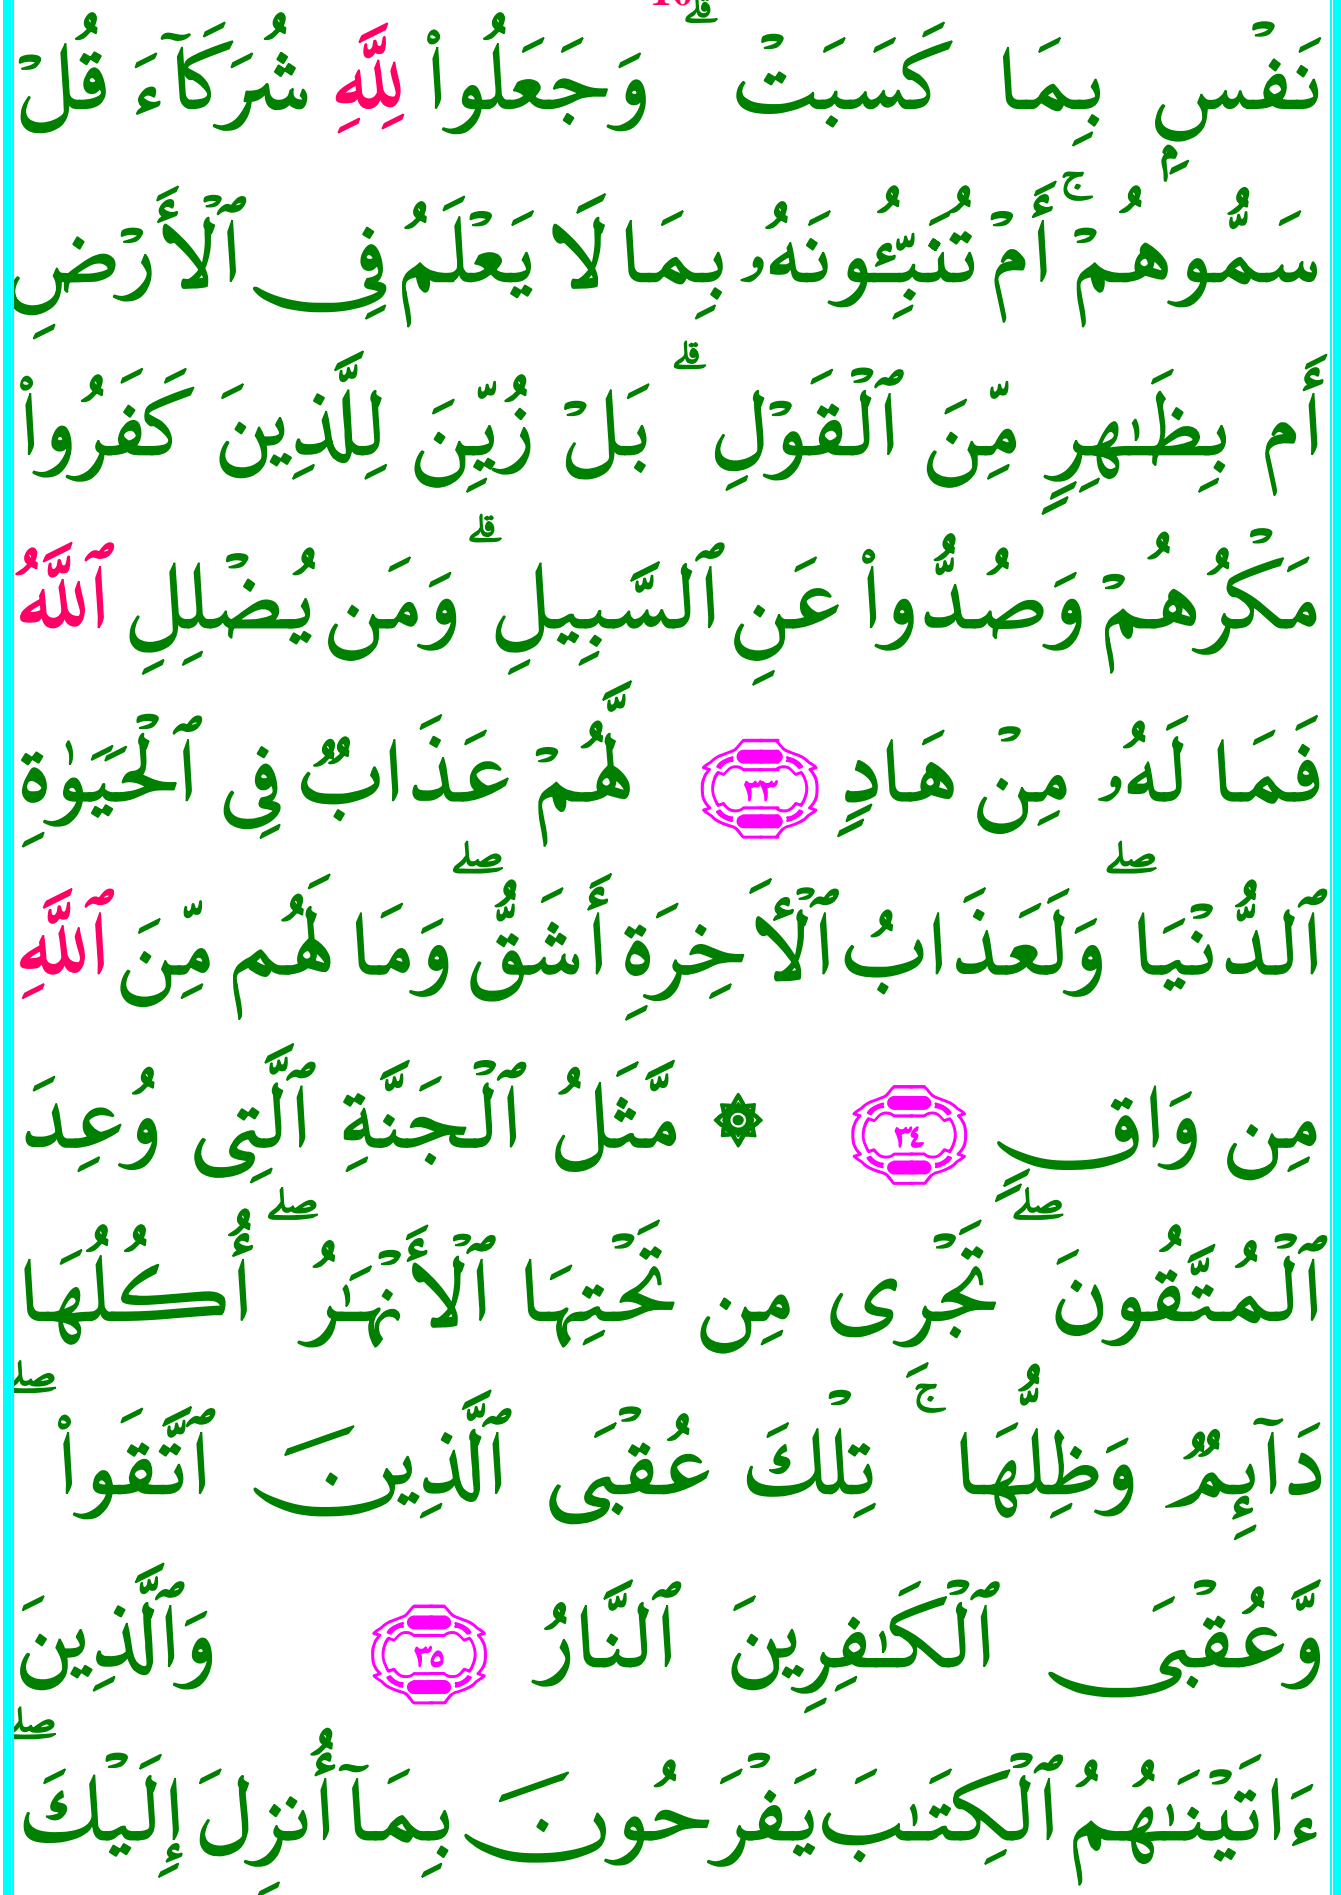 نَفْسِۭ بِمَا كَسَبَتْ ۗ وَجَعَلُوا۟ لِلَّهِ شُرَكَآءَ قُلْ
سَمُّوهُمْ ۚ أَمْ تُنَبِّـُٔونَهُۥ بِمَا لَا يَعْلَمُ فِى ٱلْأَرْضِ
أَم بِظَـٰهِرٍ مِّنَ ٱلْقَوْلِ ۗ بَلْ زُيِّنَ لِلَّذِينَ كَفَرُوا۟
مَكْرُهُمْ وَصُدُّوا۟ عَنِ ٱلسَّبِيلِ ۗ وَمَن يُضْلِلِ ٱللَّهُ
فَمَا لَهُۥ مِنْ هَادٍ ٣٣ لَّهُمْ عَذَابٌ فِى ٱلْحَيَوٰةِ
ٱلدُّنْيَا ۖ وَلَعَذَابُ ٱلْـَٔاخِرَةِ أَشَقُّ ۖ وَمَا لَهُم مِّنَ ٱللَّهِ
مِن وَاقٍ ٣٤ ۞ مَّثَلُ ٱلْجَنَّةِ ٱلَّتِى وُعِدَ
ٱلْمُتَّقُونَ ۖ تَجْرِى مِن تَحْتِهَا ٱلْأَنْهَـٰرُ ۖ أُكُلُهَا
دَآئِمٌ وَظِلُّهَا ۚ تِلْكَ عُقْبَى ٱلَّذِينَ ٱتَّقَوا۟ ۖ
وَّعُقْبَى ٱلْكَـٰفِرِينَ ٱلنَّارُ ٣٥ وَٱلَّذِينَ
ءَاتَيْنَـٰهُمُ ٱلْكِتَـٰبَ يَفْرَحُونَ بِمَآ أُنزِلَ إِلَيْكَ ۖ